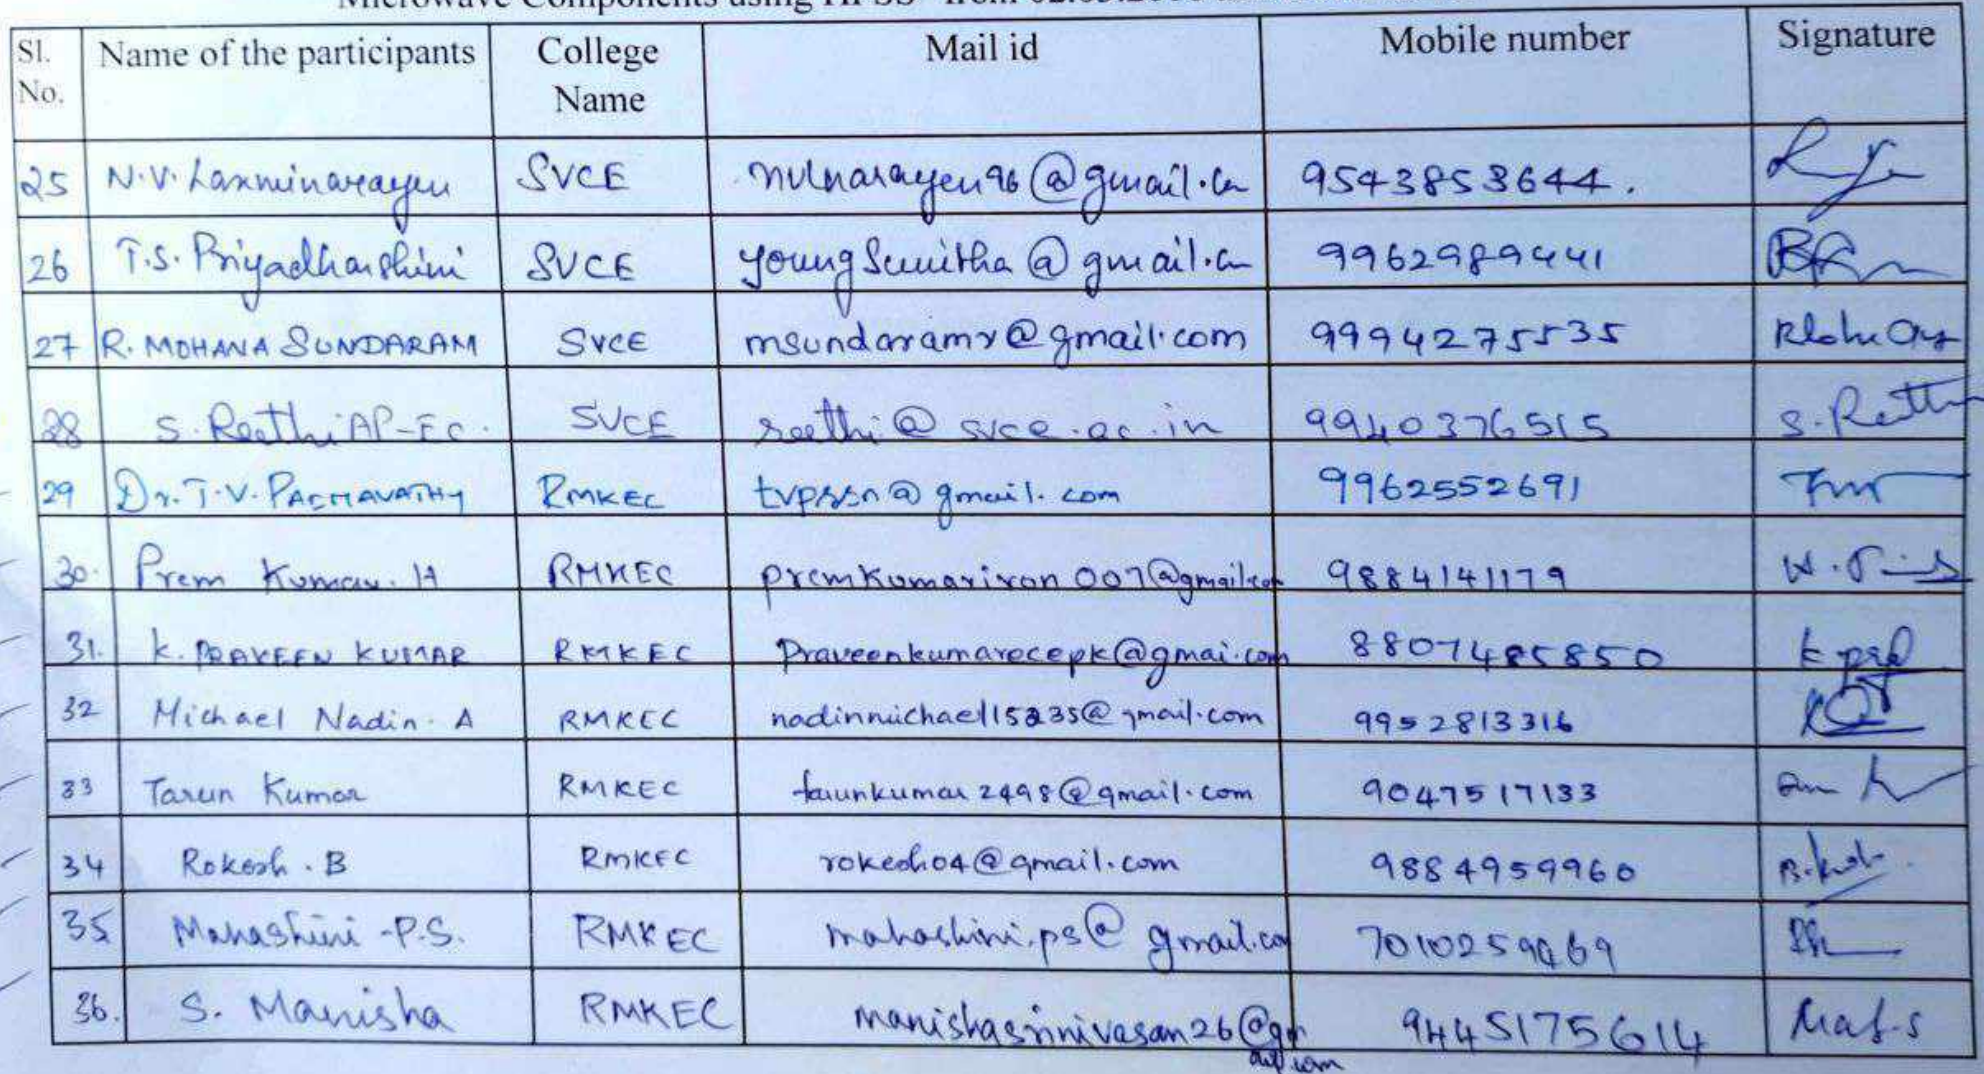 Microwave Components using
Sl. No. Name of the participants College Name Mail id Mobile number Signature
25 N.V. Laxminarayen SVCE nvlnarayen96@gmail.com 9543853644.
26 T.S. Priyadharshini SVCE youngSunitha@gmail.com 9962989441
27 R. MOHANA SUNDARAM SVCE msundaramr@gmail.com 9994275535
28 S. Reethi AP-EC. SVCE reethi@svce.ac.in 9940376515 S. Reethi
29 Dr. T.V. PADMAVATHY RMKEC tvpssn@gmail.com 9962552691
30. Prem Kumar. H RMKEC premkumariron007@gmail.com 9884141179
31. K. PRAVEEN KUMAR RMKEC Praveenkumarecepk@gmai.com 8807485850
32 Michael Nadin. A RMKEC nadinmichael15235@gmail.com 9952813316
33 Tarun Kumar RMKEC tarunkumar2498@gmail.com 9047517133
34 Rokesh. B RMKEC rokesh04@gmail.com 9884959960
35 Mahashini -P.S. RMKEC mahashini.ps@gmail.com 7010259469
36. S. Manisha RMKEC manishasrinivasan26@gmail.com 9445175614